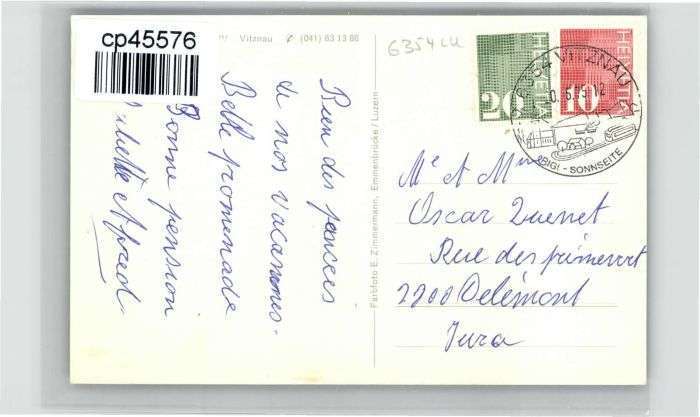 cp45576
Vitznau (041) 83 13 86
6354 LU
Bien des pensées
de nos vacances.
Belle promenade
Bonne pension
Alfred
Farbfoto E. Zimmermann, Emmenbrücke / Luzern
HELVETIA
20
HELVETIA
10
6354 VITZNAU
RIGI - SONNSEITE
Mr et Mme
Oscar Quenet
Rue des primevert
2800 Delémont
Jura